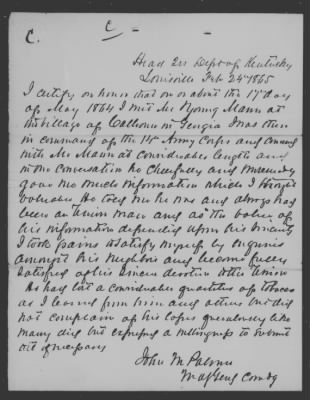 C.
Head Qrs Dept of Kentucky
Louisville Feb 24th 1865
I certify on honor that on or about the 17th day
of May 1864 I met Mr Young Mann at
the village of Calhoun in Georgia I was then
in command of the 14th Army Corps and conversed
with Mr Mann at considerable length and
in the conversation he cheerfully and
gave me much information which I thought
valuable He told me he was and always had
been a Union man and as the value of
his information depended upon his sincerity
I took pains to satisfy myself by enquiries
amongst his neighbors and became fully
satisfied of his sincere devotion to the Union
He had lost a considerable quantities of tobacco
as I learned from him and others but did
not complain of his losses querulously like
many did but expressed a willingness to submit
it if necessary
John M Palmer
Maj Genl Comdg